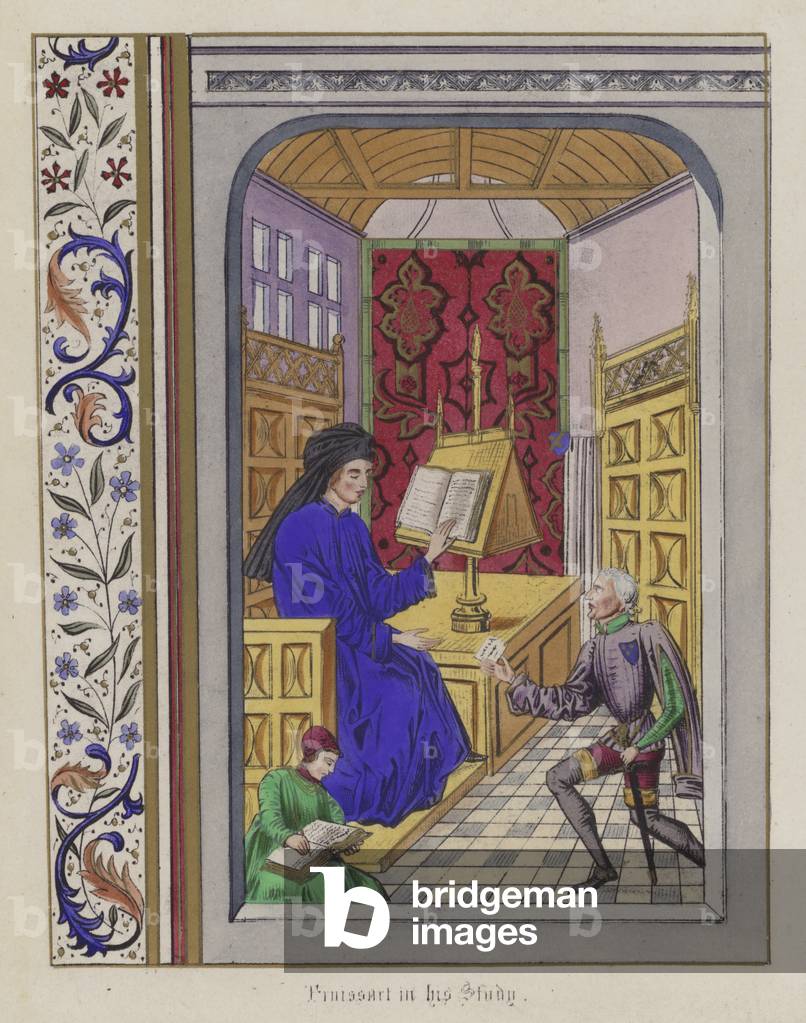 bridgeman
images
Froissart in his Study.